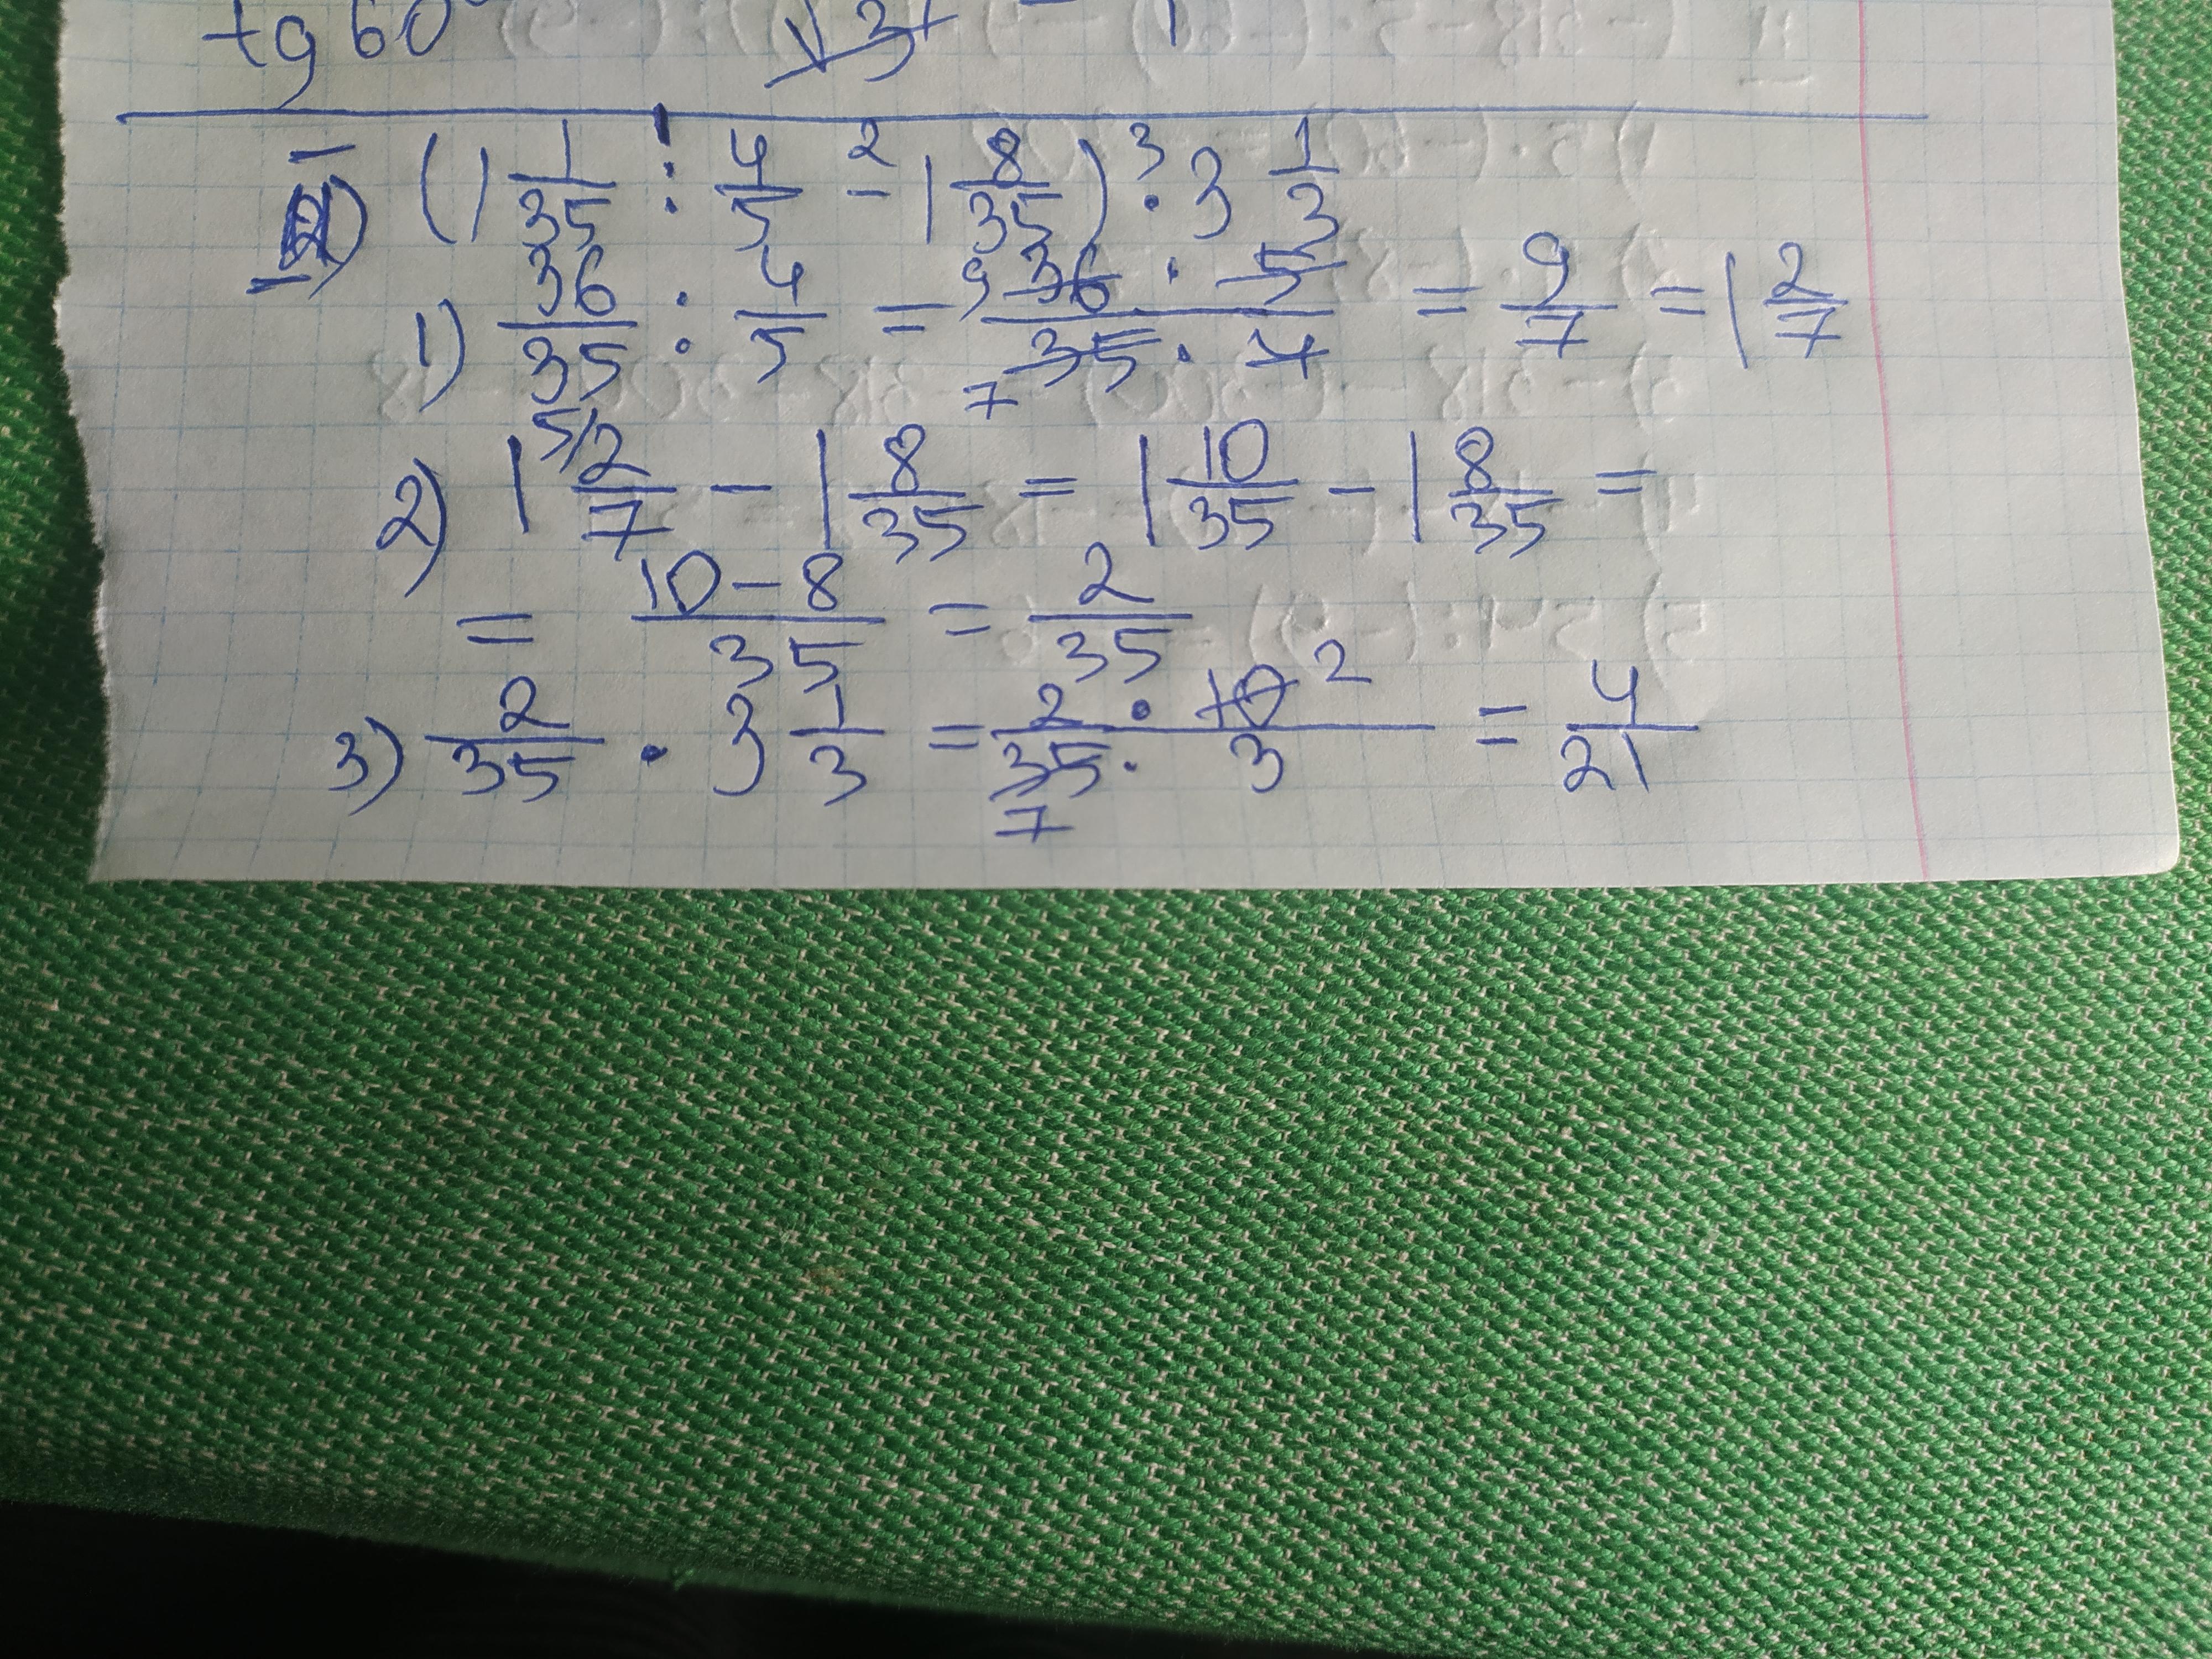 tg 60° √3
2) (1 1/35 : 4/5 - 1 8/35) · 3 1/3
1) 36/35 : 4/5 = 36 · 5 / 35 · 4 = 9/7 = 1 2/7
2) 1 2/7 - 1 8/35 = 1 10/35 - 1 8/35 =
= 10 - 8 / 35 = 2/35
3) 2/35 · 3 1/3 = 2 · 10 / 35 · 3 = 4/21